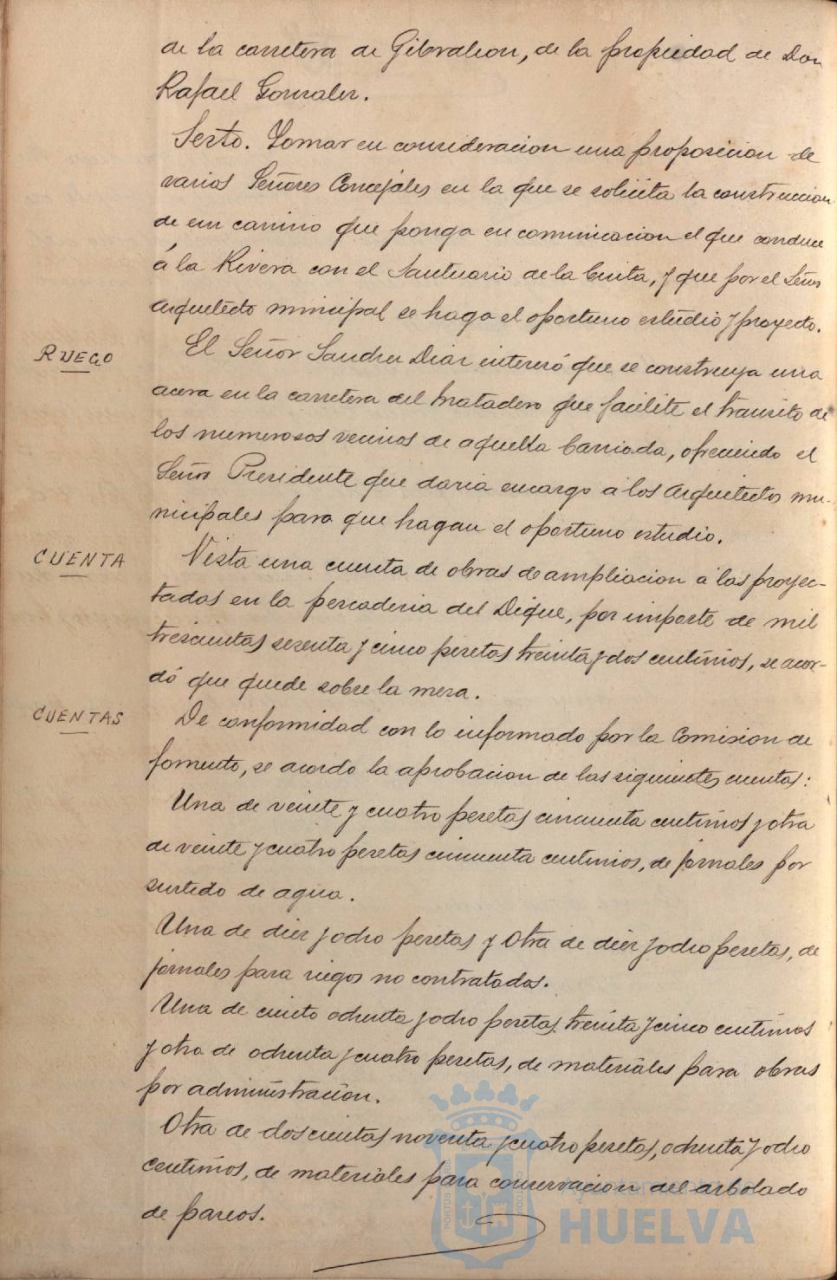 de la carretera de Gibraleon, de la propiedad de Don
Rafael Gonzalez.
Sexto. Tomar en consideracion una proposicion de
varios Señores Concejales en la que se solicita la construccion
de un camino que ponga en comunicacion el que conduce
á la Rivera con el Santuario de la Cinta, y que por el Señor
Arquitecto municipal se haga el oportuno estudio y proyecto.
RUEGO
El Señor Sanchez Diaz interesó que se construya una
acera en la carretera del Matadero que facilite el transito de
los numerosos vecinos de aquella barriada, ofreciendo el
Señor Presidente que daria encargo a los Arquitectos mu-
nicipales para que hagan el oportuno estudio.
CUENTA
Vista una cuenta de obras de ampliacion a las proyec-
tadas en la pescaderia del Dique, por importe de mil
trescientas sesenta y cinco pesetas treinta y dos centimos, se acor-
dó que quede sobre la mesa.
CUENTAS
De conformidad con lo informado por la Comision de
fomento, se acordo la aprobacion de las siguientes cuentas:
Una de veinte y cuatro pesetas cincuenta centimos y otra
de veinte y cuatro pesetas cincuenta centimos, de jornales por
surtido de agua.
Una de diez y ocho pesetas y otra de diez y ocho pesetas, de
jornales para riegos no contratados.
Una de ciento ochenta y ocho pesetas treinta y cinco centimos
y otra de ochenta y cuatro pesetas, de materiales para obras
por administracion.
Otra de doscientas noventa y cuatro pesetas, ochenta y ocho
centimos, de materiales para conservacion del arbolado
de paseos.
Ayuntamiento de
HUELVA